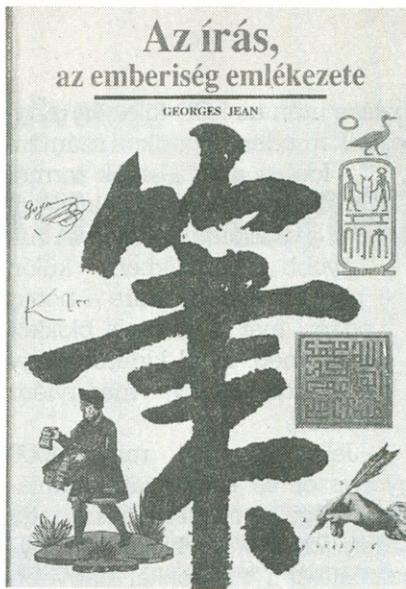 Az írás,
az emberiség emlékezete
GEORGES JEAN
Goya
筆